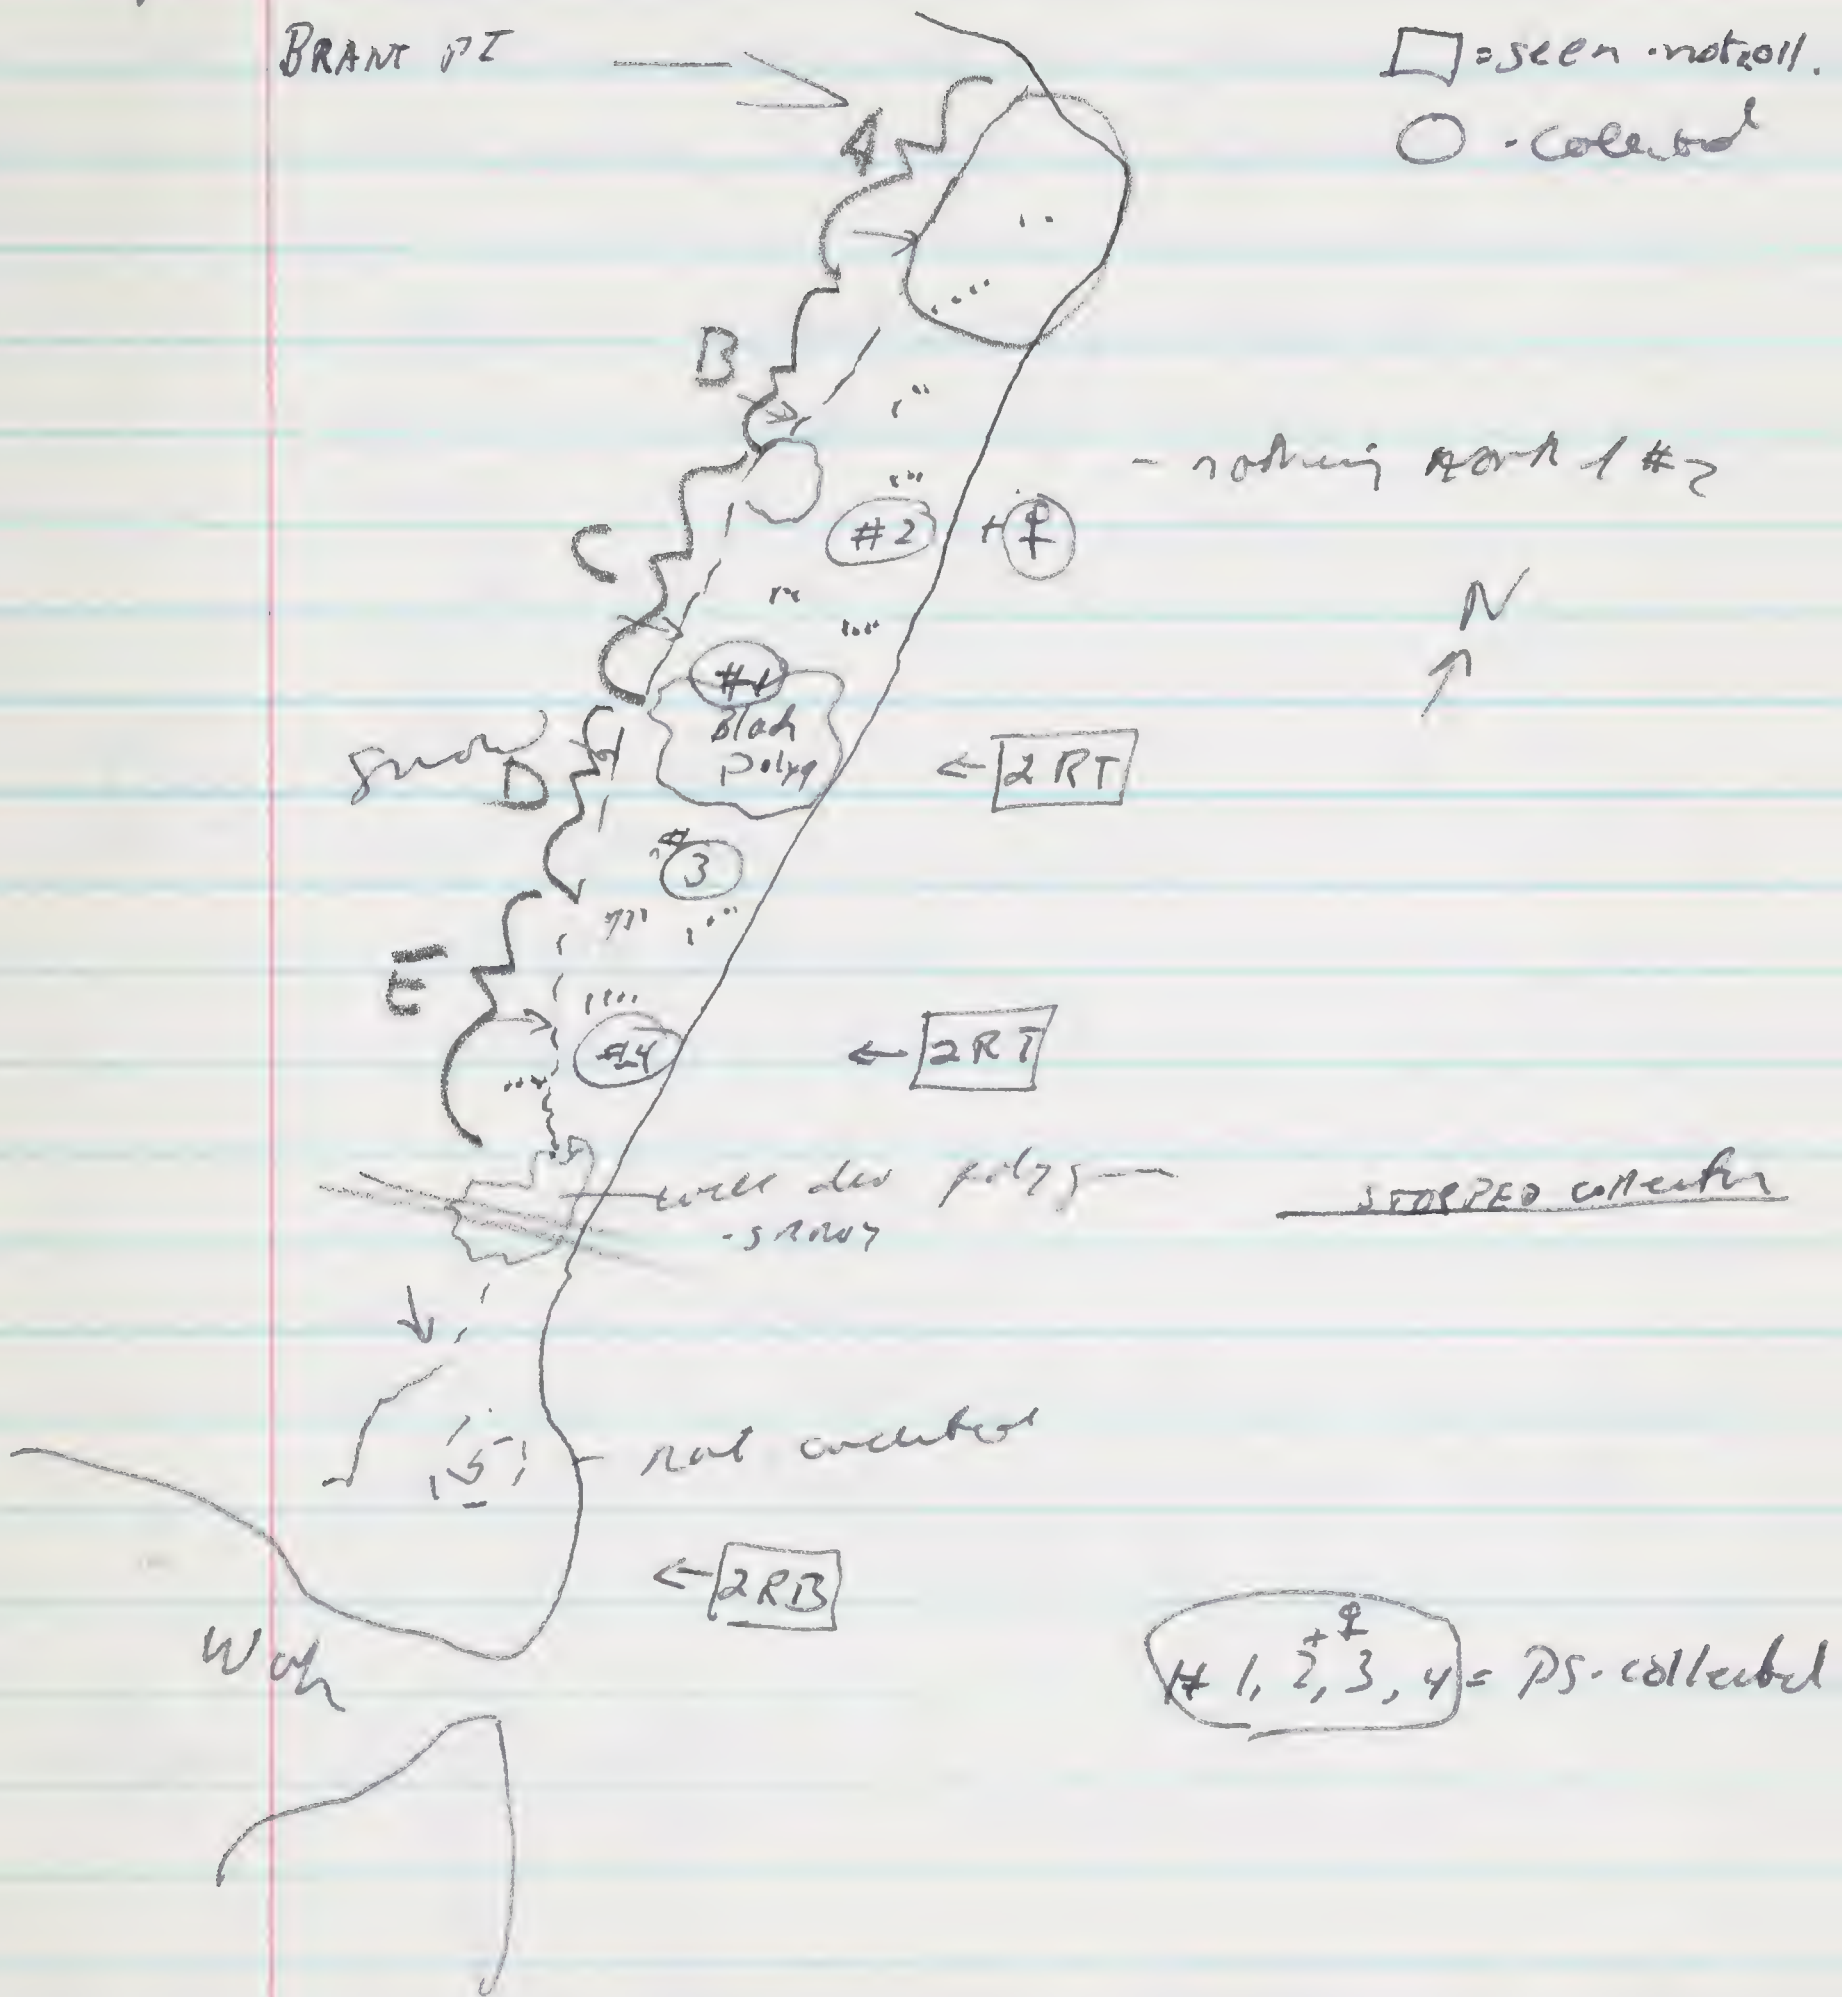 BRANT PT
□ = seen - not coll.
○ - collected
A
B
- nothing north of #2
C
#2 + ♀
N
#1
Black
Polyg
snow
D
← 2 RT
# 3
E
#4
← 2RT
well dev polyg
- snowy
STOPPED collecting
5
- not collected
← 2RB
# 1, 2, + ♀ 3, 4 = PS - collected